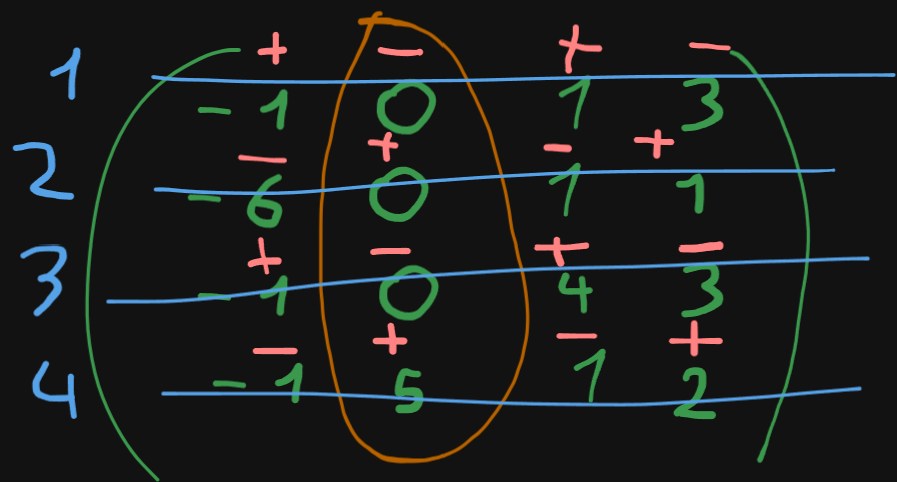 + − + −
1 −1 0 1 3
− + − +
2 −6 0 1 1
+ − + −
3 −1 0 4 3
− + − +
4 −1 5 1 2